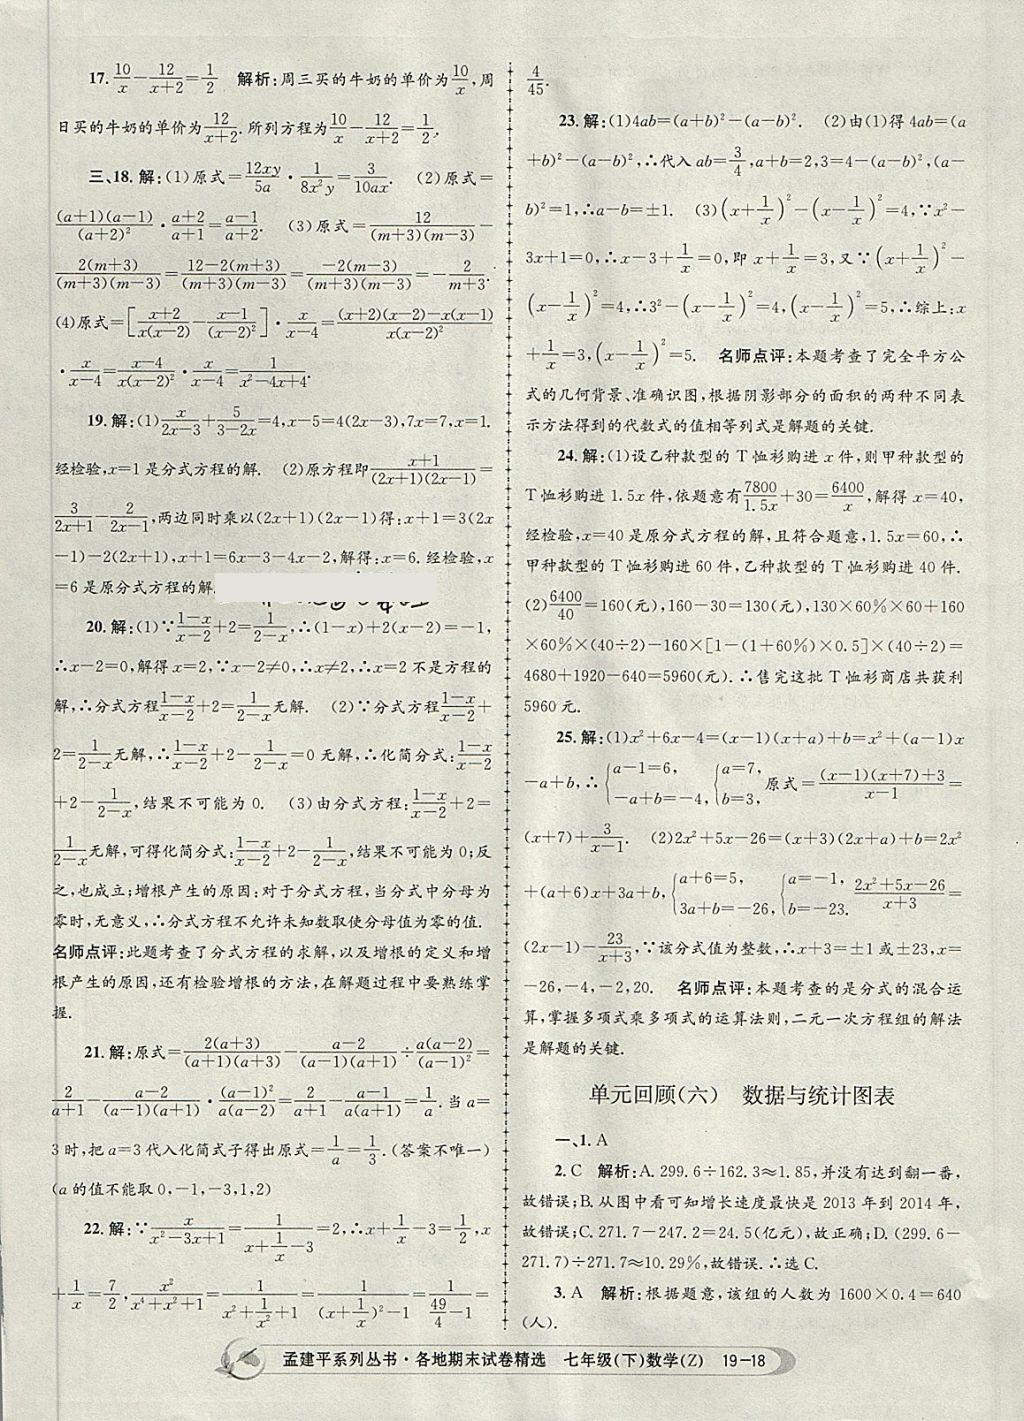 17. 10/x－12/(x+2)＝1/2　解析:周三买的牛奶的单价为10/x,周
日买的牛奶的单价为12/(x+2).所列方程为10/x－12/(x+2)＝1/2.
三、18. 解:(1)原式＝12xy/5a·1/8x²y＝3/10ax.　(2)原式＝
(a+1)(a-1)/(a+2)²·(a+2)/(a+1)＝(a-1)/(a+2).　(3)原式＝12/(m+3)(m-3)－
2(m+3)/(m+3)(m-3)＝(12-2(m+3))/(m+3)(m-3)＝-2(m-3)/(m+3)(m-3)＝－2/(m+3).
(4)原式＝[(x+2)/x(x-2)－(x-1)/(x-2)²]·x/(x-4)＝((x+2)(x-2)-x(x-1))/x(x-2)²
·x/(x-4)＝(x-4)/x(x-2)²·x/(x-4)＝1/(x²-4x+4).
19. 解:(1)x/(2x-3)＋5/(3-2x)＝4,x－5＝4(2x－3),7x＝7,x＝1.
经检验,x＝1是分式方程的解.　(2)原方程即(x+1)/(2x+1)(2x-1)＝
3/(2x+1)－2/(2x-1),两边同时乘以(2x＋1)(2x－1)得:x＋1＝3(2x
－1)－2(2x＋1),x＋1＝6x－3－4x－2,解得:x＝6. 经检验,x
＝6是原分式方程的解.
20. 解:(1)∵(1-x)/(x-2)＋2＝1/(2-x),∴(1－x)＋2(x－2)＝－1,
∴x－2＝0,解得x＝2. ∵x－2≠0,∴x≠2,∴x＝2不是方程的
解,∴分式方程(1-x)/(x-2)＋2＝1/(2-x)无解.　(2)∵分式方程(1-x)/(x-2)＋
2＝1/(2-x)无解,∴(1-x)/(x-2)＋2－1/(2-x)＝0无解,∴化简分式:(1-x)/(x-2)
＋2－1/(2-x),结果不可能为0.　(3)由分式方程:(1-x)/(x-2)＋2＝
1/(2-x)无解,可得化简分式:(1-x)/(x-2)＋2－1/(2-x),结果不可能为0;反
之,也成立;增根产生的原因:对于分式方程,当分式中分母为
零时,无意义,∴分式方程不允许未知数取使分母值为零的值.
名师点评:此题考查了分式方程的求解,以及增根的定义和增
根产生的原因,还有检验增根的方法,在解题过程中要熟练掌
握.
21. 解:原式＝2(a+3)/(a+1)(a+3)－(a-2)/(a-1)(a+1)÷a(a-2)/(a-1)²＝
2/(a+1)－(a-2)/(a-1)(a+1)·(a-1)²/a(a-2)＝(a+1)/a(a+1)＝1/a. 当a＝
3时,把a＝3代入化简式子得出原式＝1/a＝1/3.(答案不唯一)
(a的值不能取0,－1,－3,1,2)
22. 解:∵x/(x²-3x+1)＝1/(x+1/x-3)＝2,∴x＋1/x－3＝1/2,x
＋1/x＝7/2,x²/(x⁴+x²+1)＝1/(x²+1/x²+1)＝1/((x+1/x)²-1)＝1/(49/4-1)＝
4/45.
23. 解:(1)4ab＝(a＋b)²－(a－b)².　(2)由(1)得4ab＝(a
＋b)²－(a－b)²,∴代入ab＝3/4,a＋b＝2,3＝4－(a－b)²,(a－
b)²＝1,∴a－b＝±1.　(3)(x＋1/x)²－(x－1/x)²＝4,∵x²－
3x＋1＝0,∴x－3＋1/x＝0,即x＋1/x＝3,又∵(x＋1/x)²－
(x－1/x)²＝4,∴3²－(x－1/x)²＝4,(x－1/x)²＝5,∴综上:x
＋1/x＝3,(x－1/x)²＝5.　名师点评:本题考查了完全平方公
式的几何背景、准确识图,根据阴影部分的面积的两种不同表
示方法得到的代数式的值相等列式是解题的关键.
24. 解:(1)设乙种款型的T恤衫购进x件,则甲种款型的
T恤衫购进1.5x件,依题意有7800/1.5x＋30＝6400/x,解得x＝40,
经检验,x＝40是原分式方程的解,且符合题意,1.5x＝60,∴
甲种款型的T恤衫购进60件,乙种款型的T恤衫购进40件.
(2)6400/40＝160(元),160－30＝130(元),130×60%×60＋160
×60%×(40÷2)－160×[1－(1＋60%)×0.5]×(40÷2)＝
4680＋1920－640＝5960(元).∴售完这批T恤衫商店共获利
5960元.
25. 解:(1)x²＋6x－4＝(x－1)(x＋a)＋b＝x²＋(a－1)x
－a＋b,∴{a－1＝6, －a＋b＝－4, {a＝7, b＝3, 原式＝((x-1)(x+7)+3)/(x-1)＝
(x＋7)＋3/(x-1).　(2)2x²＋5x－26＝(x＋3)(2x＋a)＋b＝2x²
＋(a＋6)x＋3a＋b,{a＋6＝5, 3a＋b＝－26, {a＝－1, b＝－23. (2x²+5x-26)/(x+3)＝
(2x－1)－23/(x+3),∵该分式值为整数,∴x＋3＝±1或±23,x＝
－26,－4,－2,20.　名师点评:本题考查的是分式的混合运
算,掌握多项式乘多项式的运算法则,二元一次方程组的解法
是解题的关键.
单元回顾(六)　数据与统计图表
一、1. A
2. C　解析:A. 299.6÷162.3≈1.85,并没有达到翻一番,
故错误;B. 从图中看可知增长速度最快是2013年到2014年,
故错误;C. 271.7－247.2＝24.5(亿元),故正确;D. (299.6－
271.7)÷271.7≈10.29%,故错误.∴选C.
3. A　解析:根据题意,该组的人数为1600×0.4＝640
(人).
孟建平系列丛书·各地期末试卷精选　七年级(下)数学(Z)　19－18